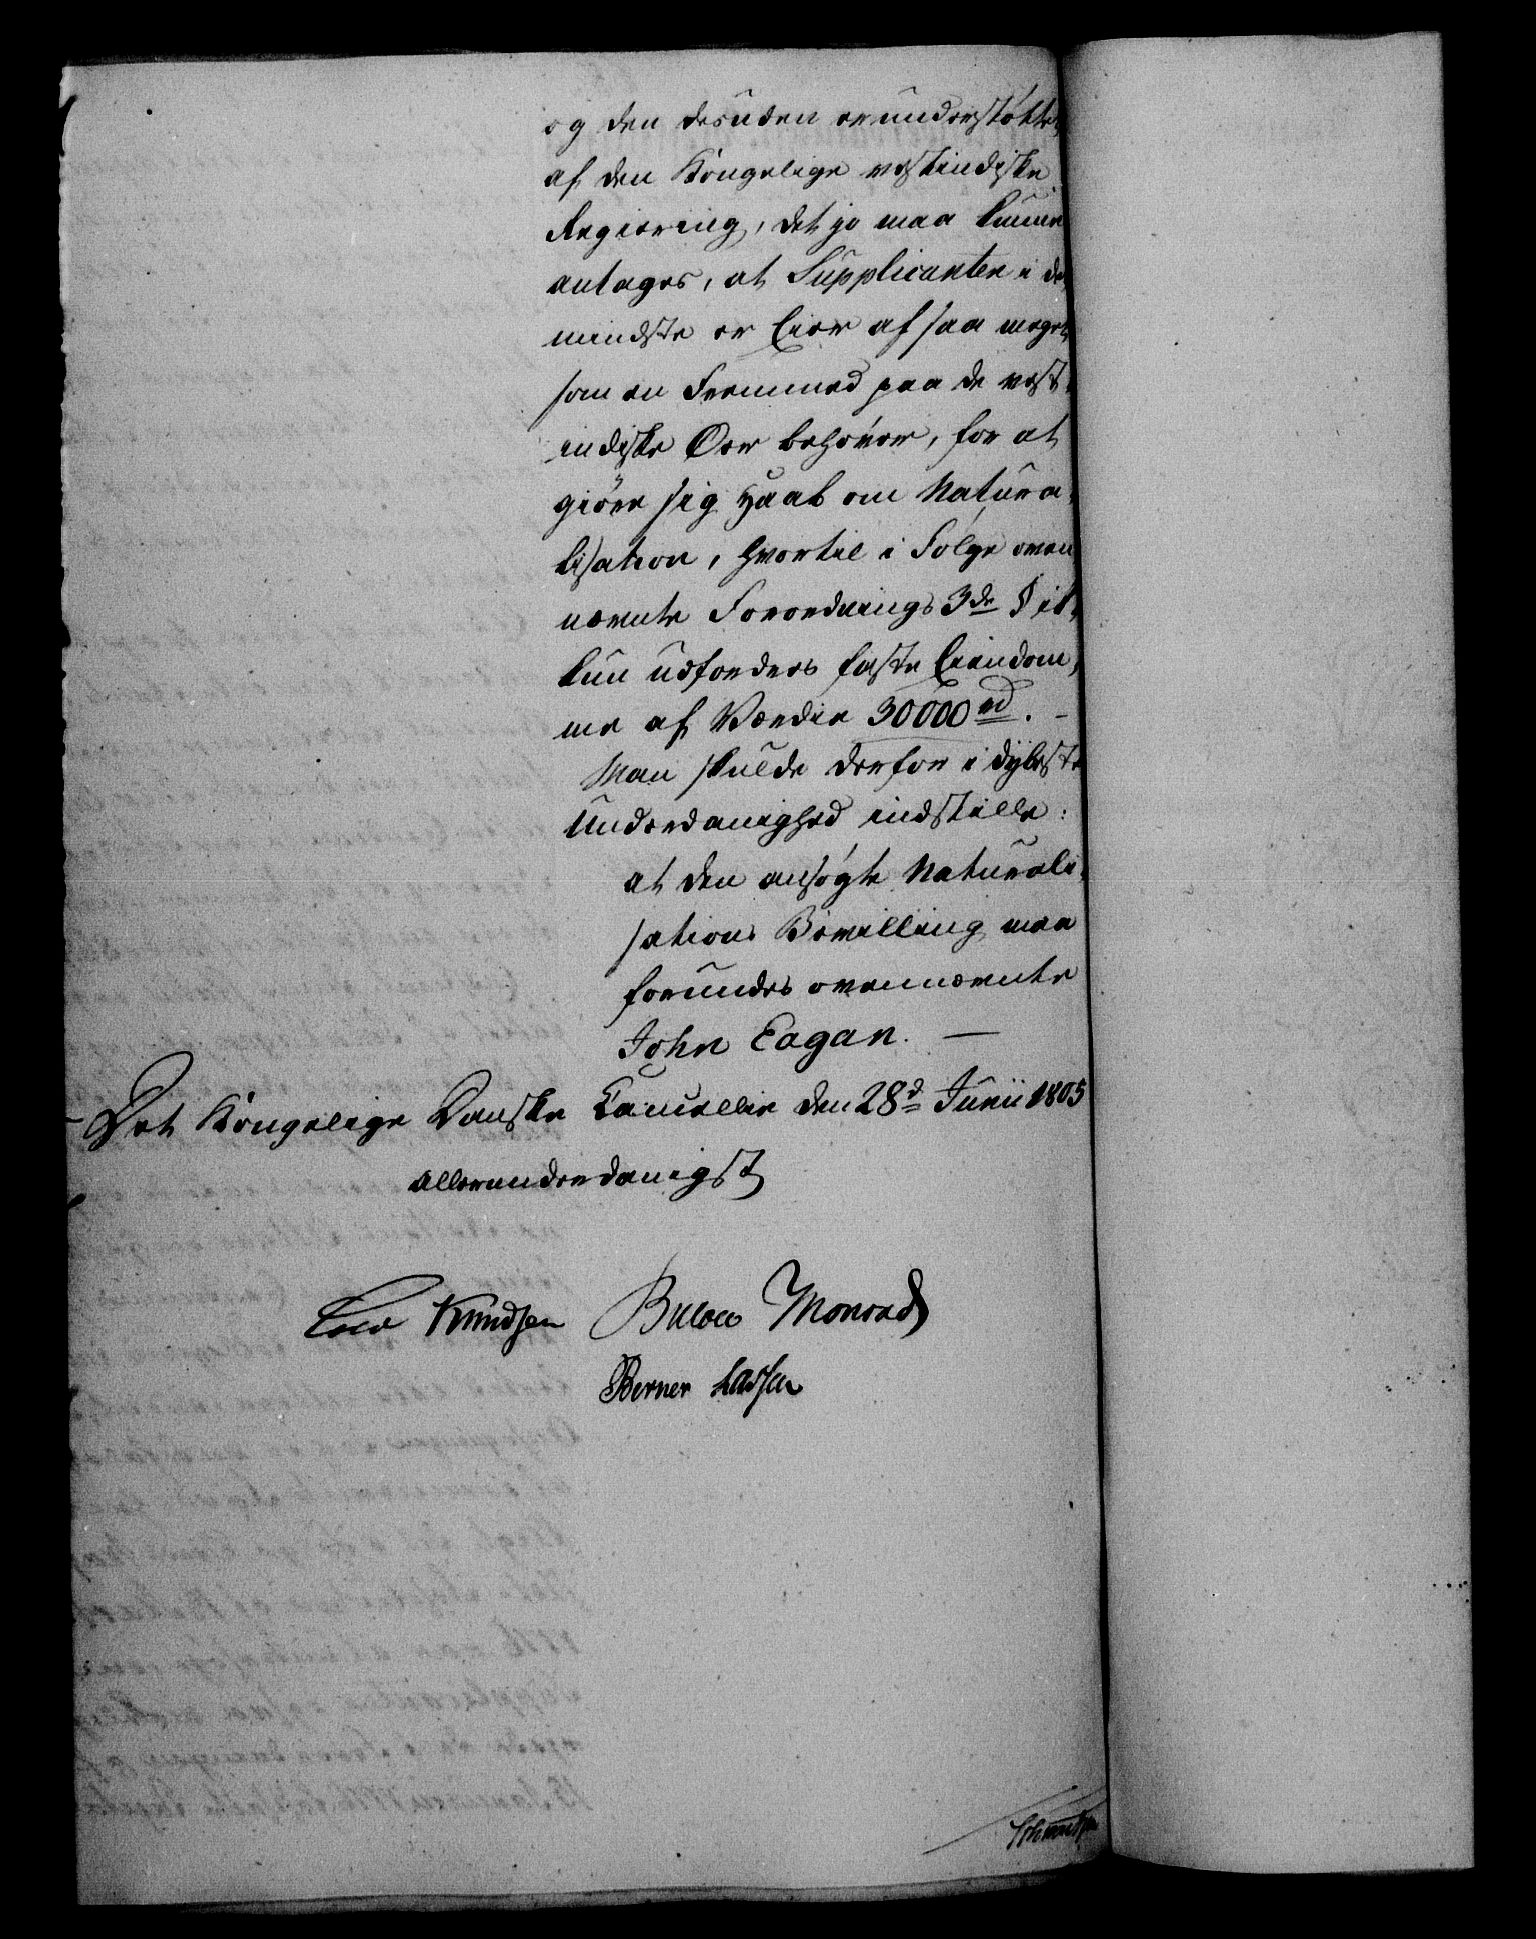 og den desuden er understøttet
af den Kongelige vestindiske
Regiering, det jo maa kunne
antages, at Supplicanten i det
mindste er Eier af saa meget,
som en Fremmed paa de vest-
indiske Øer behøver, for at
giöre sig Haab om Natura-
lisation, hvortil i Følge oven
nævnte Forordnings 3de §
kun udfordres faste Eiendom,
me af Værdie 30000 rd. -
Man skulde derfor i dybeste
Underdanighed indstille:
at den ansøgte Naturali-
sations Bevilling maa
forundes ovennævnte
John Eagan. —
Det Kongelige Danske Cancellie den 28d Junii 1805
allerunderdanigst
Knudsen Bülow Monrad
Berner Lassen